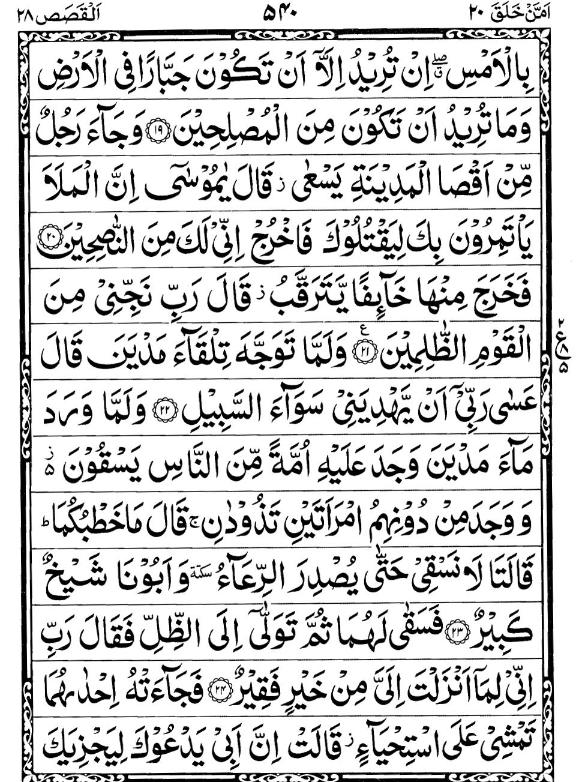 اَمَّنْ خَلَقَ ٢٠ ۵۴۰ اَلْقَصَص ٢٨
بِالْاَمْسِ ۖۗ اِنْ تُرِيْدُ اِلَّاۤ اَنْ تَكُوْنَ جَبَّارًا فِى الْاَرْضِ
وَمَا تُرِيْدُ اَنْ تَكُوْنَ مِنَ الْمُصْلِحِيْنَ ﴿١٩﴾ وَجَآءَ رَجُلٌ
مِّنْ اَقْصَا الْمَدِيْنَةِ يَسْعٰى ز قَالَ يٰمُوْسٰٓى اِنَّ الْمَلَاَ
يَاْتَمِرُوْنَ بِكَ لِيَقْتُلُوْكَ فَاخْرُجْ اِنِّىْ لَكَ مِنَ النّٰصِحِيْنَ ﴿٢٠﴾
فَخَرَجَ مِنْهَا خَآئِفًا يَّتَرَقَّبُ ز قَالَ رَبِّ نَجِّنِىْ مِنَ
الْقَوْمِ الظّٰلِمِيْنَ ﴿٢١﴾ ع وَلَمَّا تَوَجَّهَ تِلْقَآءَ مَدْيَنَ قَالَ
عَسٰى رَبِّىْۤ اَنْ يَّهْدِيَنِىْ سَوَآءَ السَّبِيْلِ ﴿٢٢﴾ وَلَمَّا وَرَدَ
مَآءَ مَدْيَنَ وَجَدَ عَلَيْهِ اُمَّةً مِّنَ النَّاسِ يَسْقُوْنَ ز ۵
وَوَجَدَ مِنْ دُوْنِهِمُ امْرَاَتَيْنِ تَذُوْدٰنِ ج قَالَ مَا خَطْبُكُمَا ط
قَالَتَا لَا نَسْقِىْ حَتّٰى يُصْدِرَ الرِّعَآءُ سكتة وَاَبُوْنَا شَيْخٌ
كَبِيْرٌ ﴿٢٣﴾ فَسَقٰى لَهُمَا ثُمَّ تَوَلّٰىۤ اِلَى الظِّلِّ فَقَالَ رَبِّ
اِنِّىْ لِمَاۤ اَنْزَلْتَ اِلَىَّ مِنْ خَيْرٍ فَقِيْرٌ ﴿٢٤﴾ فَجَآءَتْهُ اِحْدٰىهُمَا
تَمْشِىْ عَلَى اسْتِحْيَآءٍ ز قَالَتْ اِنَّ اَبِىْ يَدْعُوْكَ لِيَجْزِيَكَ